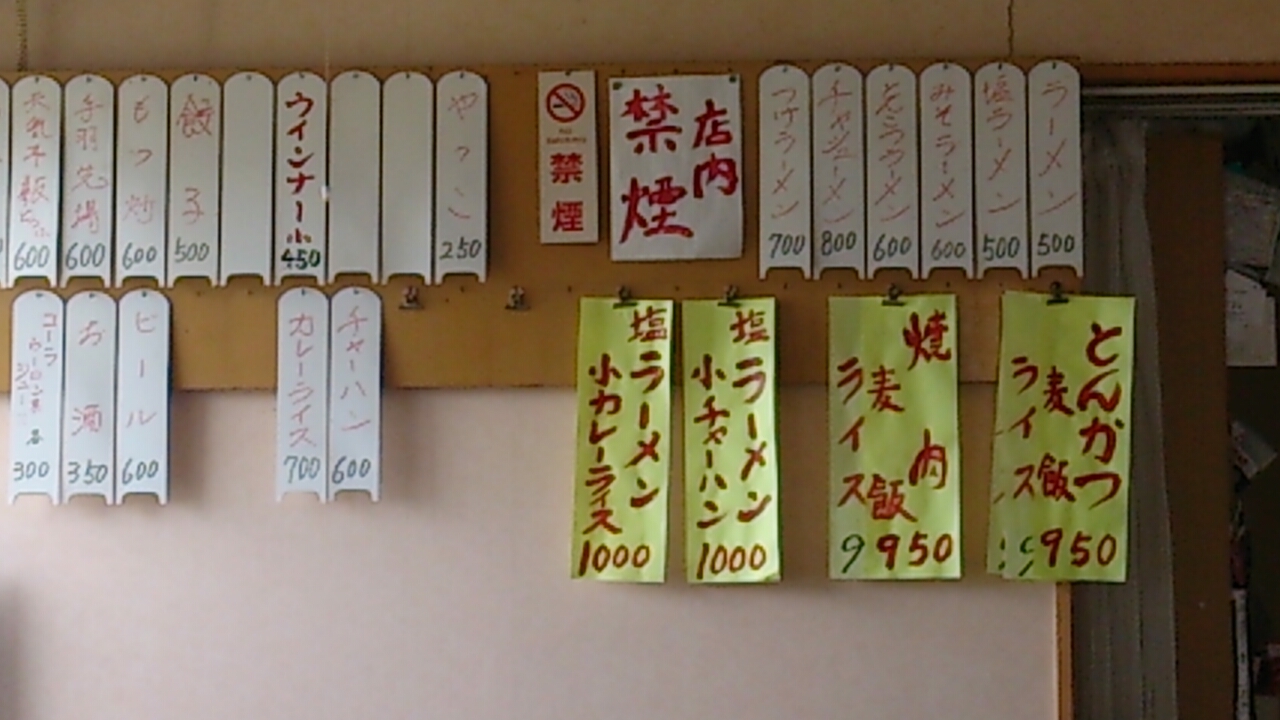 ラーメン 500
塩ラーメン 500
みそラーメン 600
とんこつラーメン 600
チャシューメン 800
つけラーメン 700
店内
禁煙
NO SMOKING
禁煙
やっこ 250
ウインナー小 450
餃子 500
もつ炒 600
手羽先揚 600
600
とんかつ
麦飯
ライス
950
焼肉
麦飯
ライス
950
塩ラーメン
小チャーハン
1000
塩ラーメン
小カレーライス
1000
チャーハン 600
カレーライス 700
ビール 600
お酒 350
コーラ
ウーロン茶
ジュース
各
300